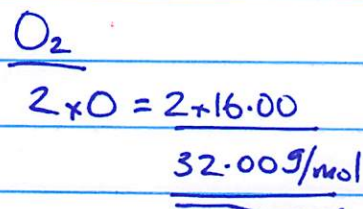 O₂
2×O = 2×16.00
32.00g/mol